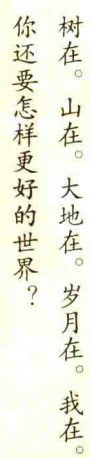 树在。山在。大地在。岁月在。我在。
你还要怎样更好的世界？